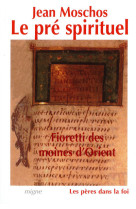 Jean Moschos
Le pré spirituel
Fioretti des
moines d'Orient
migne
Les pères dans la foi